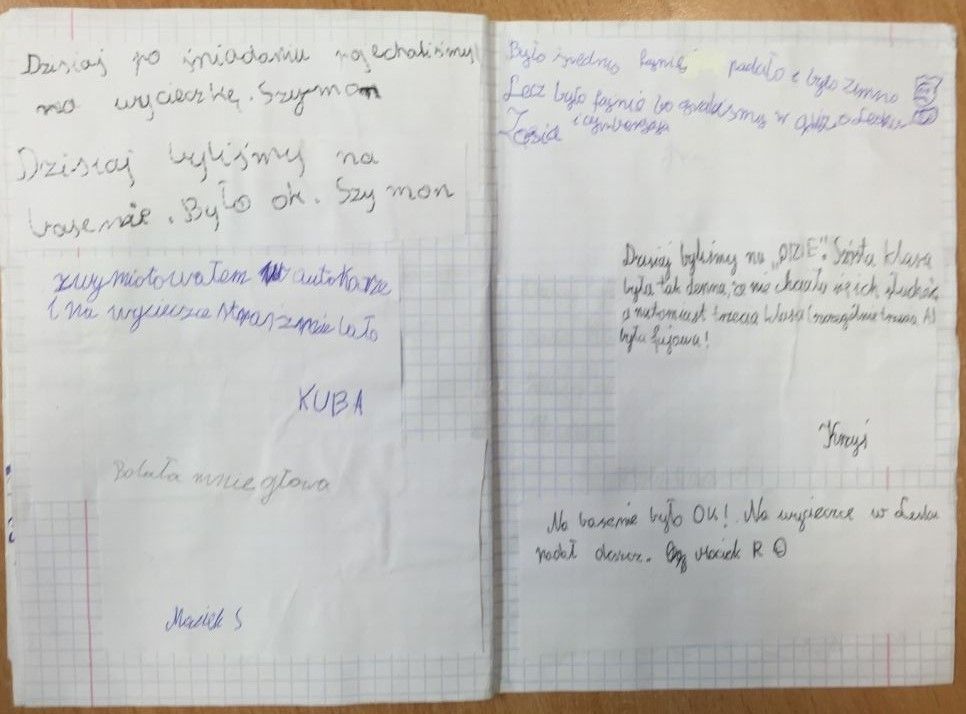 Dzisiaj po śniadaniu pojechaliśmy
na wycieczkę. Szymon
Dzisiaj byliśmy na
basenie. Było ok. Szymon
zwymiotowałem w autokarze
i na wycieczce strasznie lało
KUBA
Bolała mnie głowa
Maciek S
Było średnio fajnie padało i było zimno
Lecz było fajnie bo w o Lesku
Zosia i
Dzisiaj byliśmy na „DIZIE". Szósta klasa
była tak denna, że nie chciało się ich słuchać,
a natomiast trzecia klasa (szczególnie trzecia A)
była fajowa!
Krzyś
Na basenie było OK! Na wycieczce w Lesku
padał deszcz. Maciek R